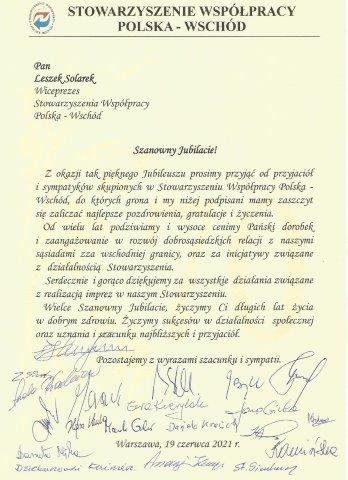 STOWARZYSZENIE WSPÓŁPRACY
POLSKA - WSCHÓD
Pan
Leszek Solarek
Wiceprezes
Stowarzyszenia Współpracy
Polska - Wschód
Szanowny Jubilacie!
Z okazji tak pięknego Jubileuszu prosimy przyjąć od przyjaciół
i sympatyków skupionych w Stowarzyszeniu Współpracy Polska -
Wschód, do których grona i my niżej podpisani mamy zaszczyt
się zaliczać najlepsze pozdrowienia, gratulacje i życzenia.
Od wielu lat podziwiamy i wysoce cenimy Pański dorobek
i zaangażowanie w rozwój dobrosąsiedzkich relacji z naszymi
sąsiadami zza wschodniej granicy, oraz za inicjatywy związane
z działalnością Stowarzyszenia.
Serdecznie i gorąco dziękujemy za wszystkie działania związane
z realizacją imprez w naszym Stowarzyszeniu.
Wielce Szanowny Jubilacie, życzymy Ci długich lat życia
w dobrym zdrowiu. Życzymy sukcesów w działalności społecznej
oraz uznania i szacunku najbliższych i przyjaciół.
Pozostajemy z wyrazami szacunku i sympatii.
Warszawa, 19 czerwca 2021 r.